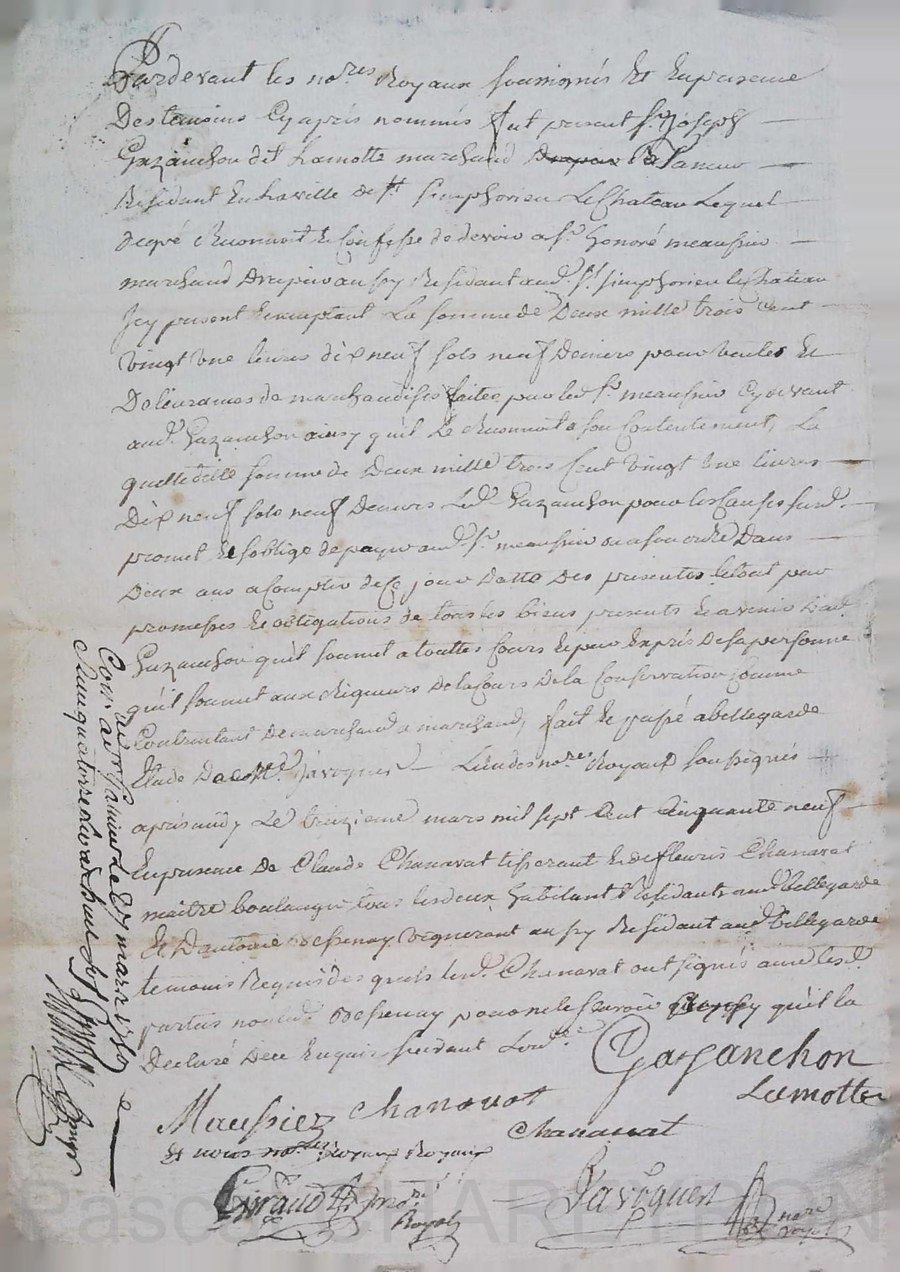 Pardevant les no.res Royaux soussignés Et En presence
Des temoins Cy après nommés fut present Sr. Joseph
Gazanchon dit Lamotte marchand
Residant En la ville de St. Simphorien Le Chateau Lequel
De gré a Reconnu Et Confesse de devoir a Sr. honoré meaussier
marchand Drapier aussy Residant aud. St. simphorien le Chateau
Icy present Acceptant La somme de Deux mille trois Cent
Vingt Une livres dix neuf sols neuf Deniers pour Ventes Et
Delivrances de marchandises faites par led Sr. meaussier Cy devant
aud. Gazanchon ainsy qu'il Le Reconnoit a son Contentement, La
quelle dite somme de Deux mille trois Cent Vingt Une livres
Dix neuf sols neuf Deniers Led. Gazanchon pour les Causes susd.
promet Et s'oblige de payer aud. Sr. meaussier ou a son ordre Dans
Deux ans a Compter de Ce jour Datte Des presentes Le tout par
promesses Et obligations de tous les biens presents Et avenir Dud.
Gazanchon qu'il soumet a touttes Cours Et par Exprés De sa personne
qu'il soumet aux Rigueurs De la Cours De la Conservation Comme
Contractant De marchand a marchand, fait Et passé a bellegarde
Etude De Me. Javogues L'un des no.res Royaux soussignés
apres midy Le treizieme mars mil sept Cent Cinquante neuf
En presence de Claude Chanavat tisserant Et de fleuris Chanavat
maitre boulanger tous les deux habitant Residants aud. bellegarde
Et D'antoine Despenay Vigneront aussy Residant aud. bellegarde
temoins Requis Des quels les d. Chanavat ont signés avec les d.
parties non led. Despenay pour ne le sçavoir qu'il la
Declaré De ce Enquis suivant L'ord.ce
Gazanchon
Lamotte
Maussier Chanavat
Chanavat
Et nous no.res Royaux
Giraud no.re Royal
Javogues no.re Royal
Con.lé au
quatorze livres huit sols
Pascal CHARLTRON